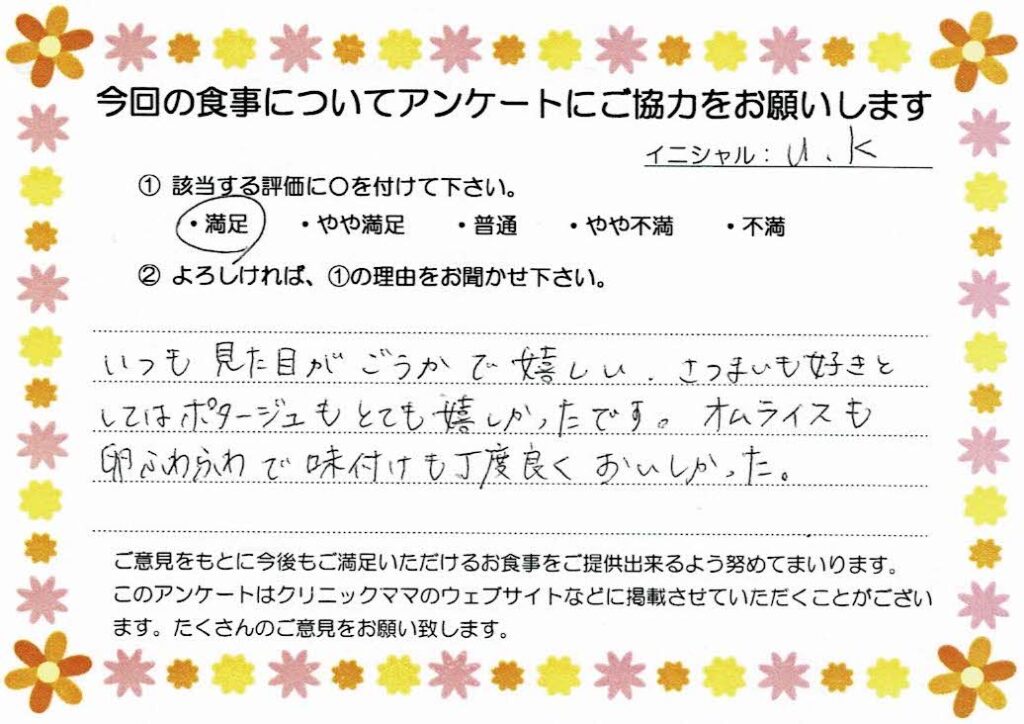 今回の食事についてアンケートにご協力をお願いします
イニシャル: U.K
① 該当する評価に○を付けて下さい。
・満足 ・やや満足 ・普通 ・やや不満 ・不満
② よろしければ、①の理由をお聞かせ下さい。
いつも見た目がごうかで嬉しい. さつまいも好きと
してはポタージュもとても嬉しかったです。オムライスも
卵ふわふわで味付けも丁度良くおいしかった。
ご意見をもとに今後もご満足いただけるお食事をご提供出来るよう努めてまいります。
このアンケートはクリニックママのウェブサイトなどに掲載させていただくことがござい
ます。たくさんのご意見をお願い致します。